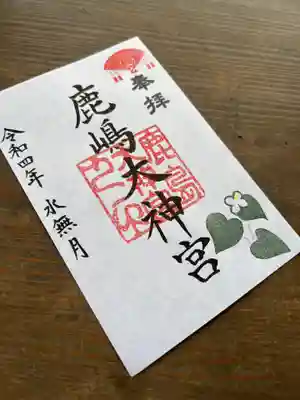 奉拝
鹿嶋大神宮
令和四年 水無月